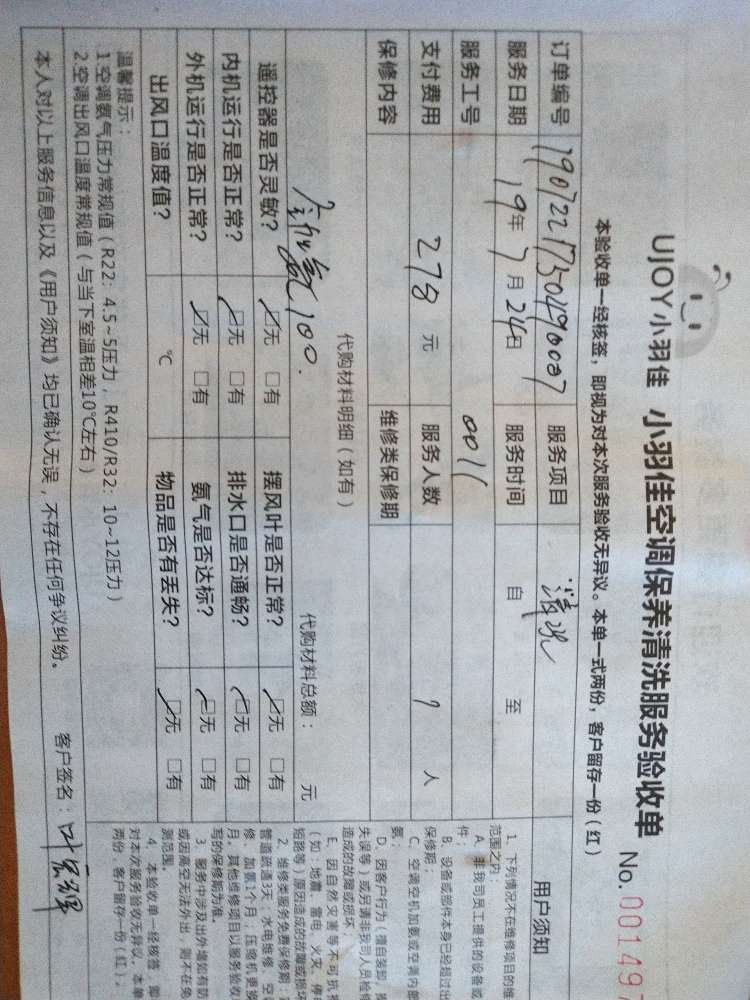 UJOY小羽佳 小羽佳空调保养清洗服务验收单 No.00149
本验收单一经核签，即视为对本次服务验收无异议。本单一式两份，客户留存一份（红）
订单编号 服务项目 清洗
服务日期 19年7月24日 服务时间 自 至
服务工号 0011
支付费用 278 元 服务人数 1 人
保修内容 维修类保修期
代购材料明细（如有）
100. 代购材料总额： 元
遥控器是否灵敏？ ☑无 □有 摆风叶是否正常？ ☑无 □有
内机运行是否正常？ ☑无 □有 排水口是否通畅？ ☑无 □有
外机运行是否正常？ ☑无 □有 氨气是否达标？ ☑无 □有
出风口温度值？ ℃ 物品是否有丢失？ ☑无 □有
温馨提示：
1.空调氨气压力常规值（R22：4.5~5压力，R410/R32：10~12压力）
2.空调出风口温度常规值（与当下室温相差10℃左右）
本人对以上服务信息以及《用户须知》均已确认无误，不存在任何争议纠纷。 客户签名：
用户须知
1、下列情况不在维修项目的维
范围之内：
A、非我司员工提供的设备或
件；
B、设备或部件本身已经超过出
保修期；
C、空调空机加氨或空调内部
氨；
D、因客户行为（擅自装卸，
失误等）或另请非我司人员检修
造成的故障或损坏；
E、因自然灾害等不可抗
（如：地震、雷电、火灾、停
短路等）原因造成的故障或损坏
2、维修类服务免费保修期：
管道疏通3天，水电维修、空
修、加氨1个月；压缩机更换
月，其他维修项目以服务验收
写的保修期为准。
3、服务中涉及出外墙如有防
或因高空无法外出，则不在免
测范围。
4、本验收单一经核签，即
对本次服务验收无异议。本单
两份，客户留存一份（红）。